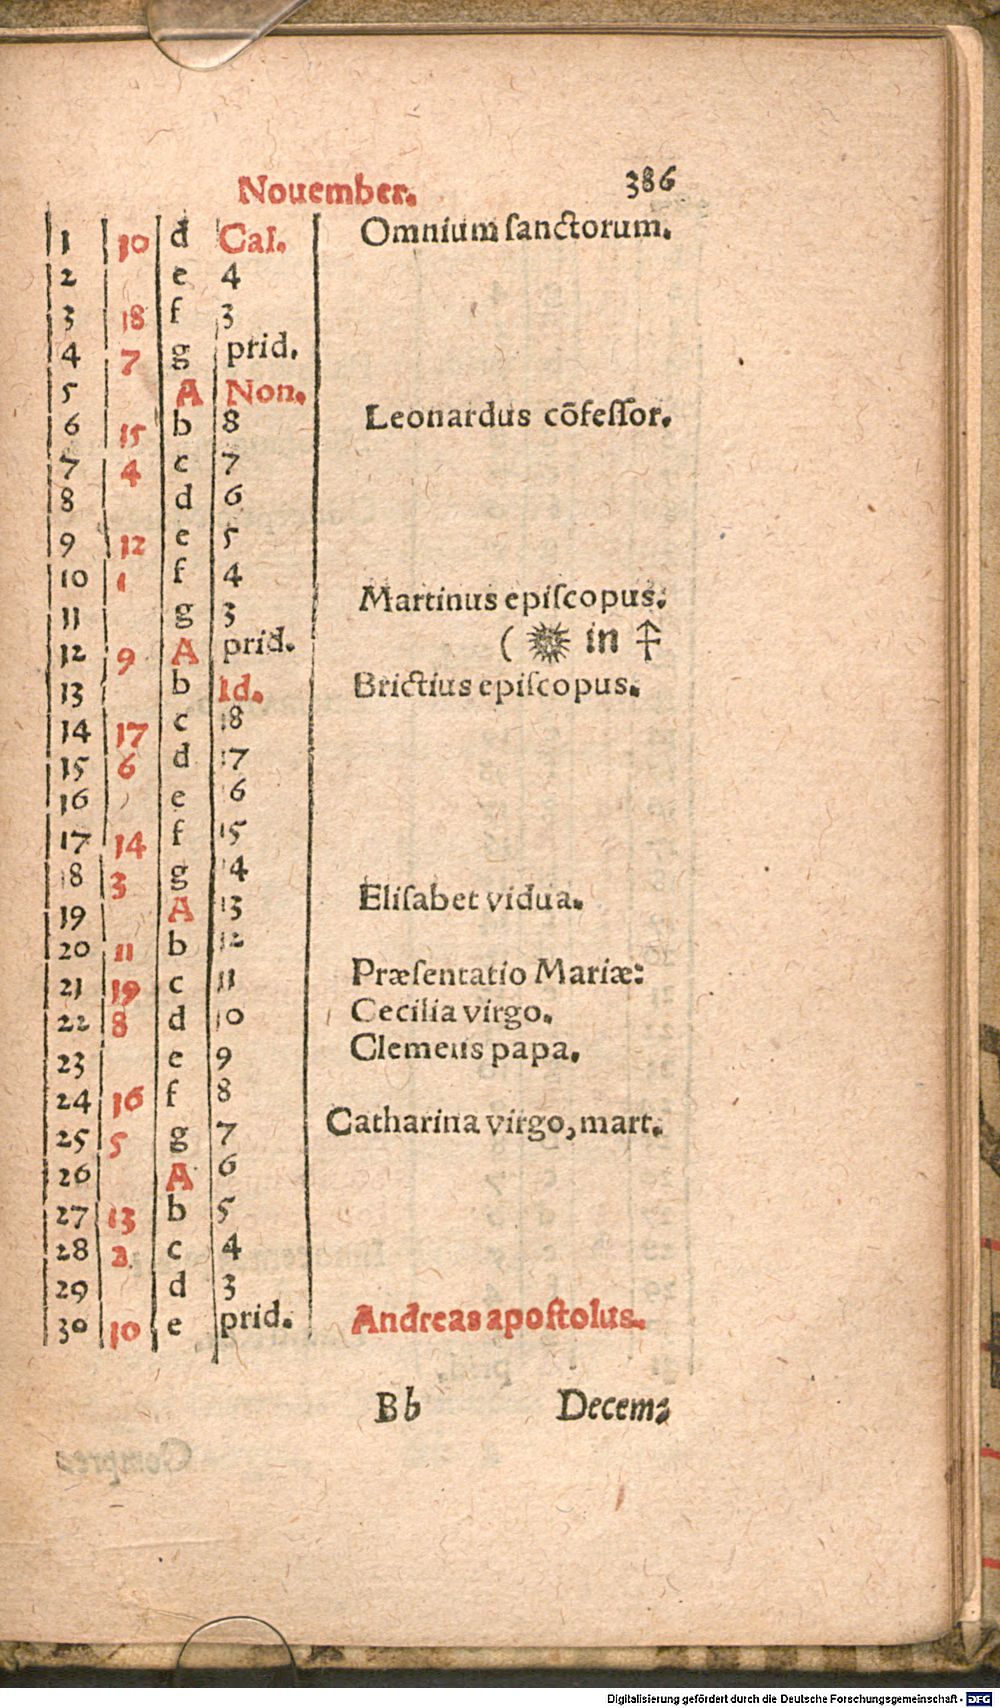 Nouember. 386
1 10 d Cal. Omnium ſanctorum.
2 e 4
3 18 f 3
4 7 g prid.
5 A Non.
6 15 b 8 Leonardus cõfeſſor.
7 4 c 7
8 d 6
9 12 e 5
10 1 f 4
11 g 3 Martinus epiſcopus.
12 9 A prid. ( ☀ in ♐
13 b Id. Brictius epiſcopus.
14 17 c 18
15 6 d 17
16 e 16
17 14 f 15
18 3 g 14
19 A 13 Eliſabet vidua.
20 11 b 12
21 19 c 11 Præſentatio Mariæ:
22 8 d 10 Cecilia virgo.
23 e 9 Clemeus papa.
24 16 f 8
25 5 g 7 Catharina virgo, mart.
26 A 6
27 13 b 5
28 2 c 4
29 d 3
30 10 e prid. Andreas apoſtolus.
Bb Decem⸗
Digitalisierung gefördert durch die Deutsche Forschungsgemeinschaft - DFG